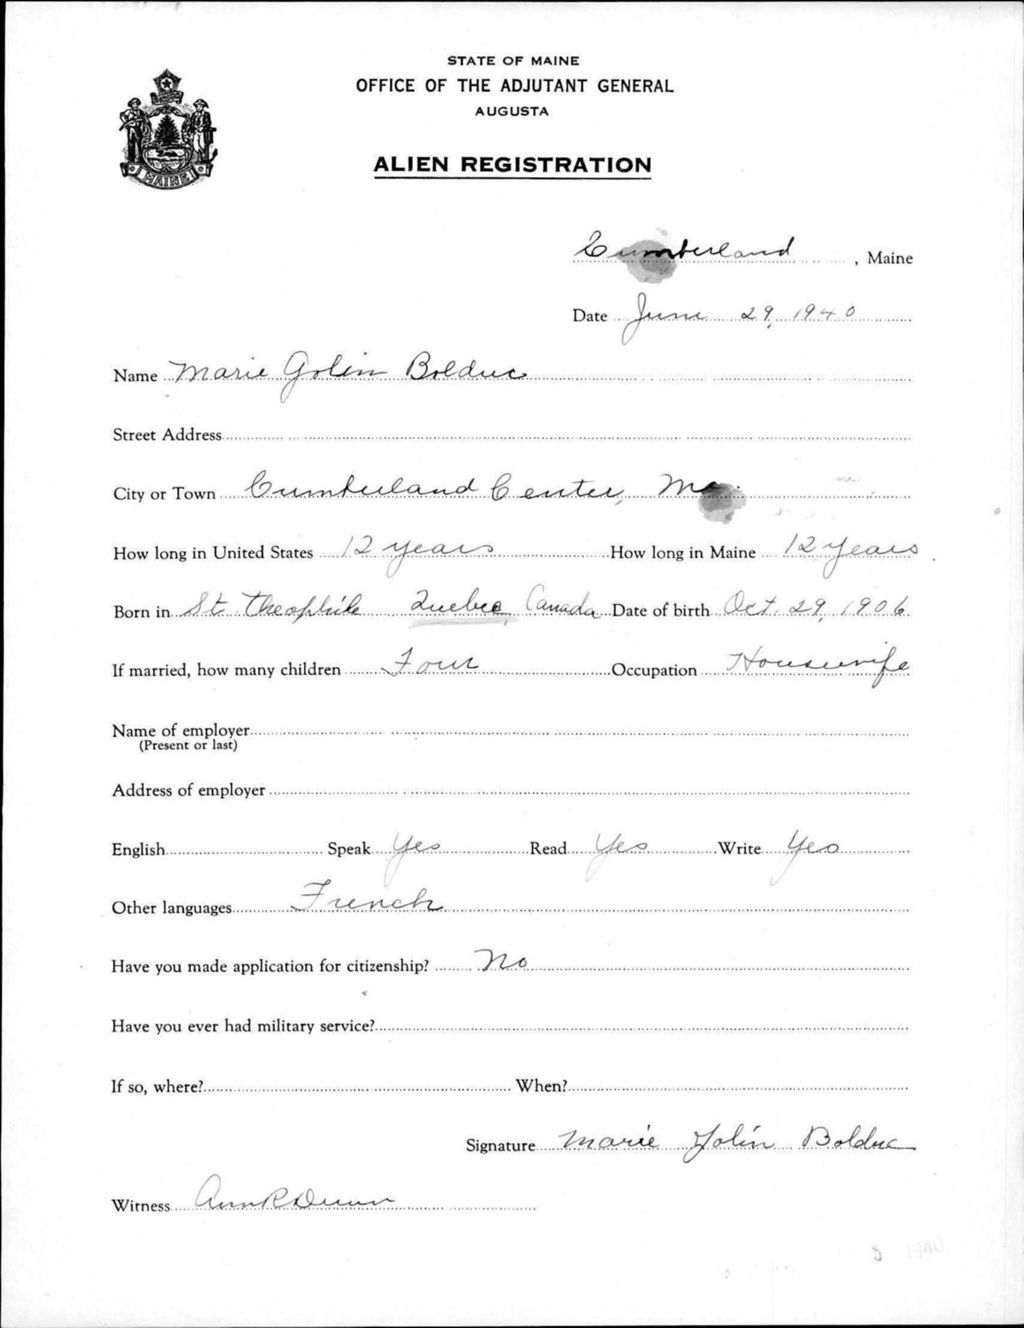 STATE OF MAINE
OFFICE OF THE ADJUTANT GENERAL
AUGUSTA
ALIEN REGISTRATION
MAINE
Cumberland, Maine
Date June 29, 1940
Name Marie Golin Bolduc
Street Address
City or Town Cumberland Center, Me.
How long in United States 12 years How long in Maine 12 years
Born in St. Theophile Quebec, Canada Date of birth Oct. 29, 1906
If married, how many children Four Occupation Housewife
Name of employer
(Present or last)
Address of employer
English Speak Yes Read Yes Write Yes
Other languages French
Have you made application for citizenship? No
Have you ever had military service?
If so, where? When?
Signature Marie Golin Bolduc
Witness Ann R Dunn